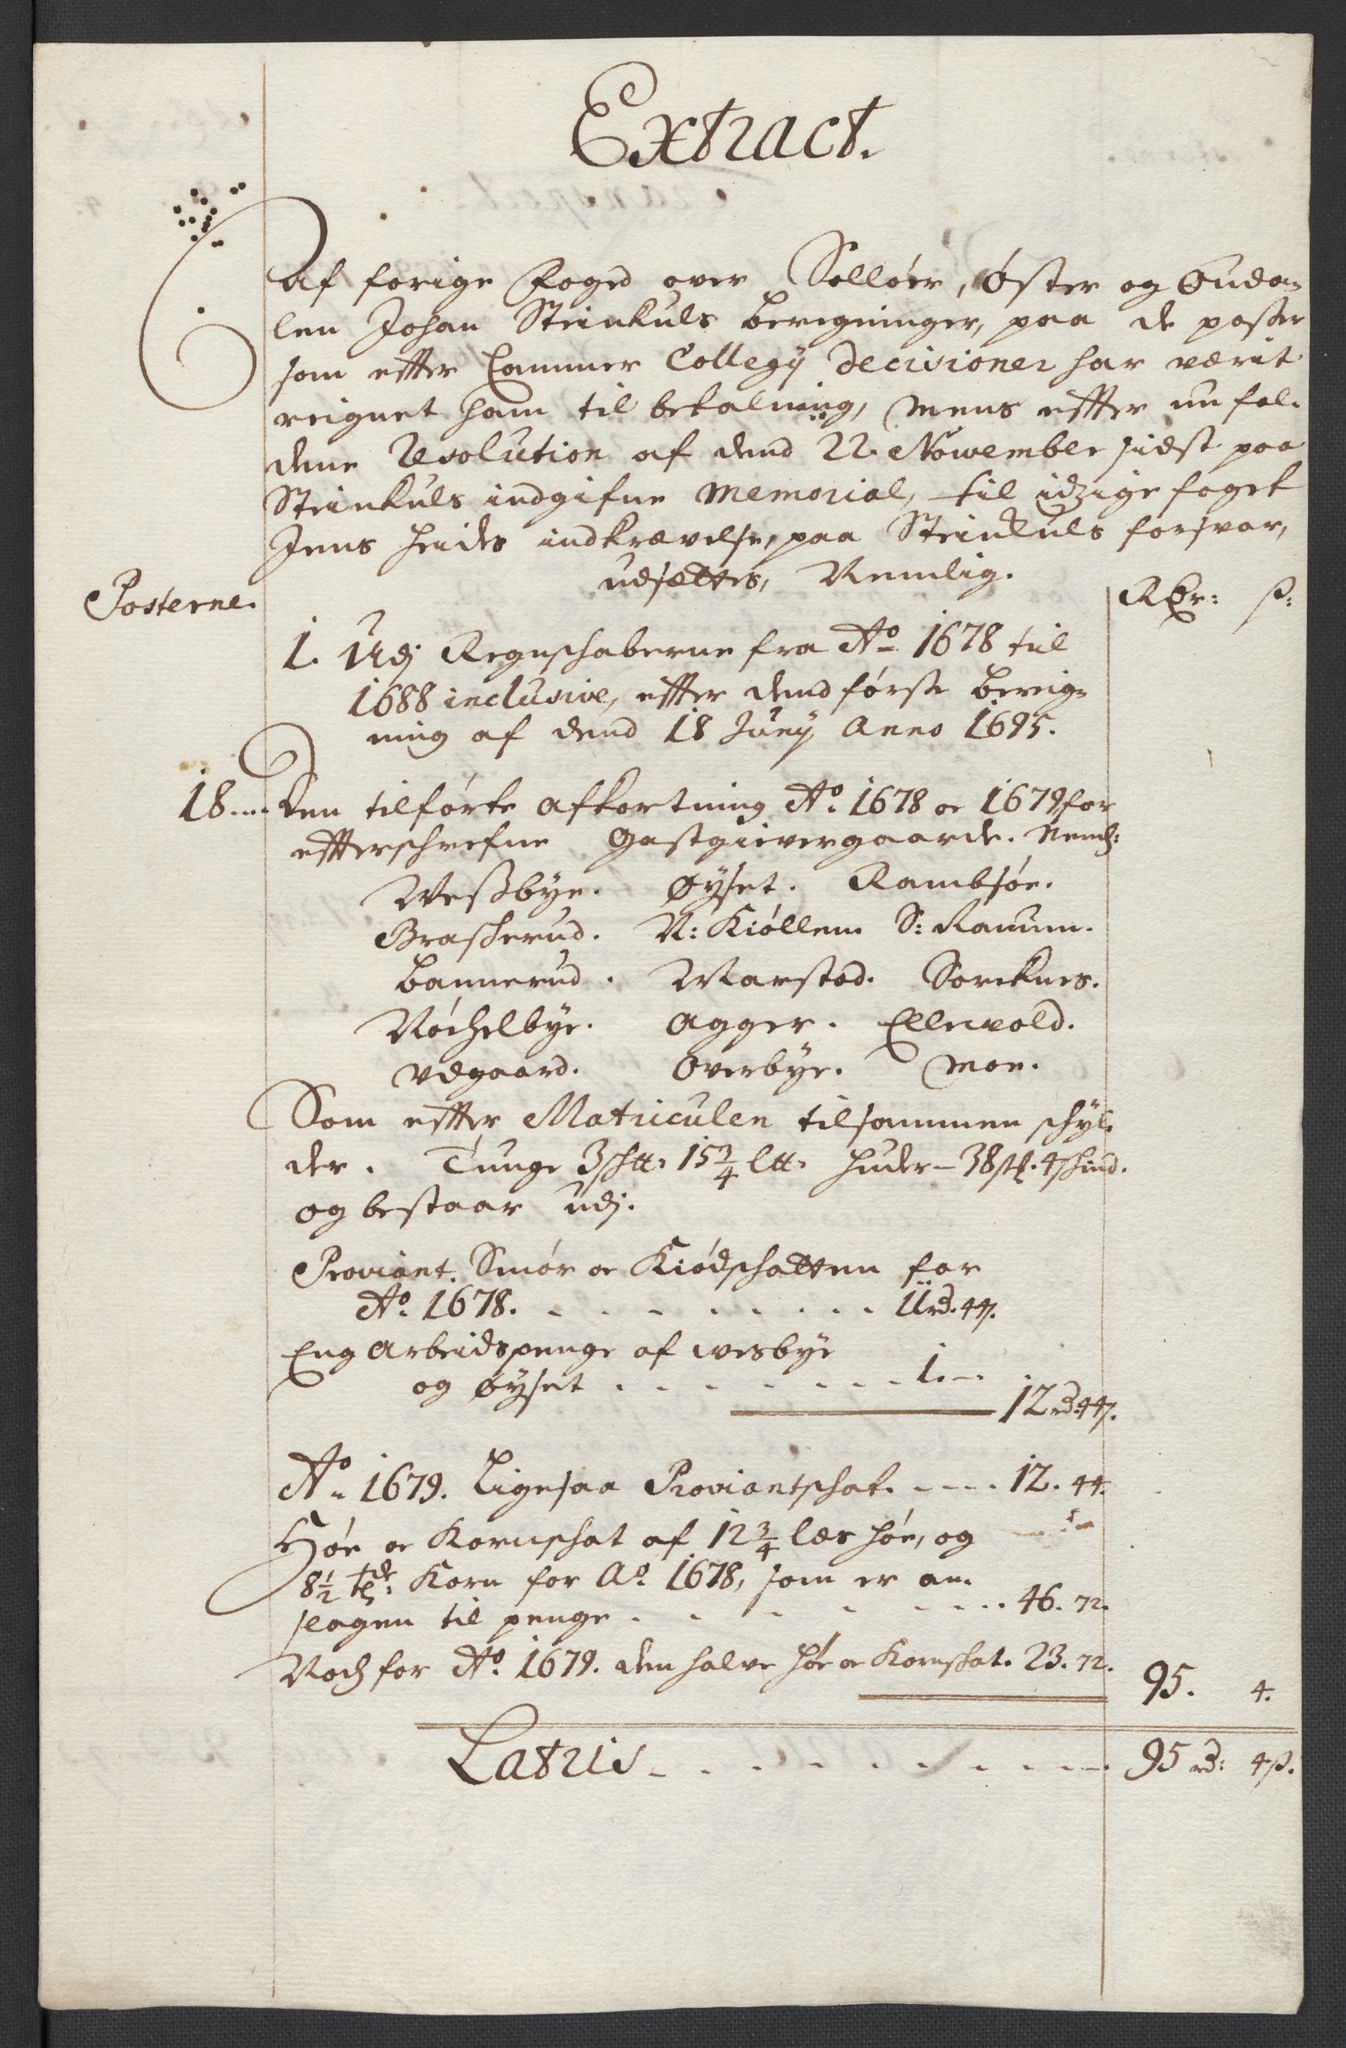 Extract.
Af forige Foged over Solløer, Øster og Ouda-
len Johan Steinkuls beregninger, paa de poster
som efter Cammer Collegÿ Decisioner har værit
reignet ham til betalning, mens effter nu fal-
dene Resolution af dend 22. Nowember sidst paa
Steinkuls indgifne Memorial, til idzige foget
Jens Heides indkrævelse, paa Steinkuls forsvar,
udsættes, Nemlig.
Posterne. Rdr: ß:
1. Udj Regnschaberne fra Ao 1678 til
1688 inclusive, effter dend første bereig-
ning af dend 18 Junÿ Anno 1695.
18.... Den tilførte Afkortning Ao. 1678 oc 1679 for
effterschrefne Gastgievergaarde. Neml:
Weßbye. Øyset. Rambsøe.
Brascherud. N: Kiøllem S: Ramum.
Bannerud. Warstad. Sorcknes.
Nøchelbye. Agger. Ellevold.
Wdgaard. Overbye. Moe.
Som effter Matriculen tilsammen schyl-
der. Tunge 3 sh℔: 15 3/4 l℔: Huder - 38 st. 4 schind.
og bestaar udj.
Proviant. Smør oc Kiødschatten for
Ao. 1678. . . . . . . . . 11 rd. 44.
Eng Arbeidspenge af Wesbye
og Øyset . . . . . . . 1. —
12 rd. 44.
Ao. 1679. Ligesaa Proviantschat. . . . . 12. 44.
Høe oc Kornschat af 12 3/4 læs høe, og
8 1/2 tdr: Korn for Ao. 1678, som er an-
slagen til penge . . . . . . . 46. 72.
Noch for Ao. 1679. den halve høe oc Kornschat. 23. 72.
95. 4.
Latris . . . . . . . . . 95 rd: 4 ß.